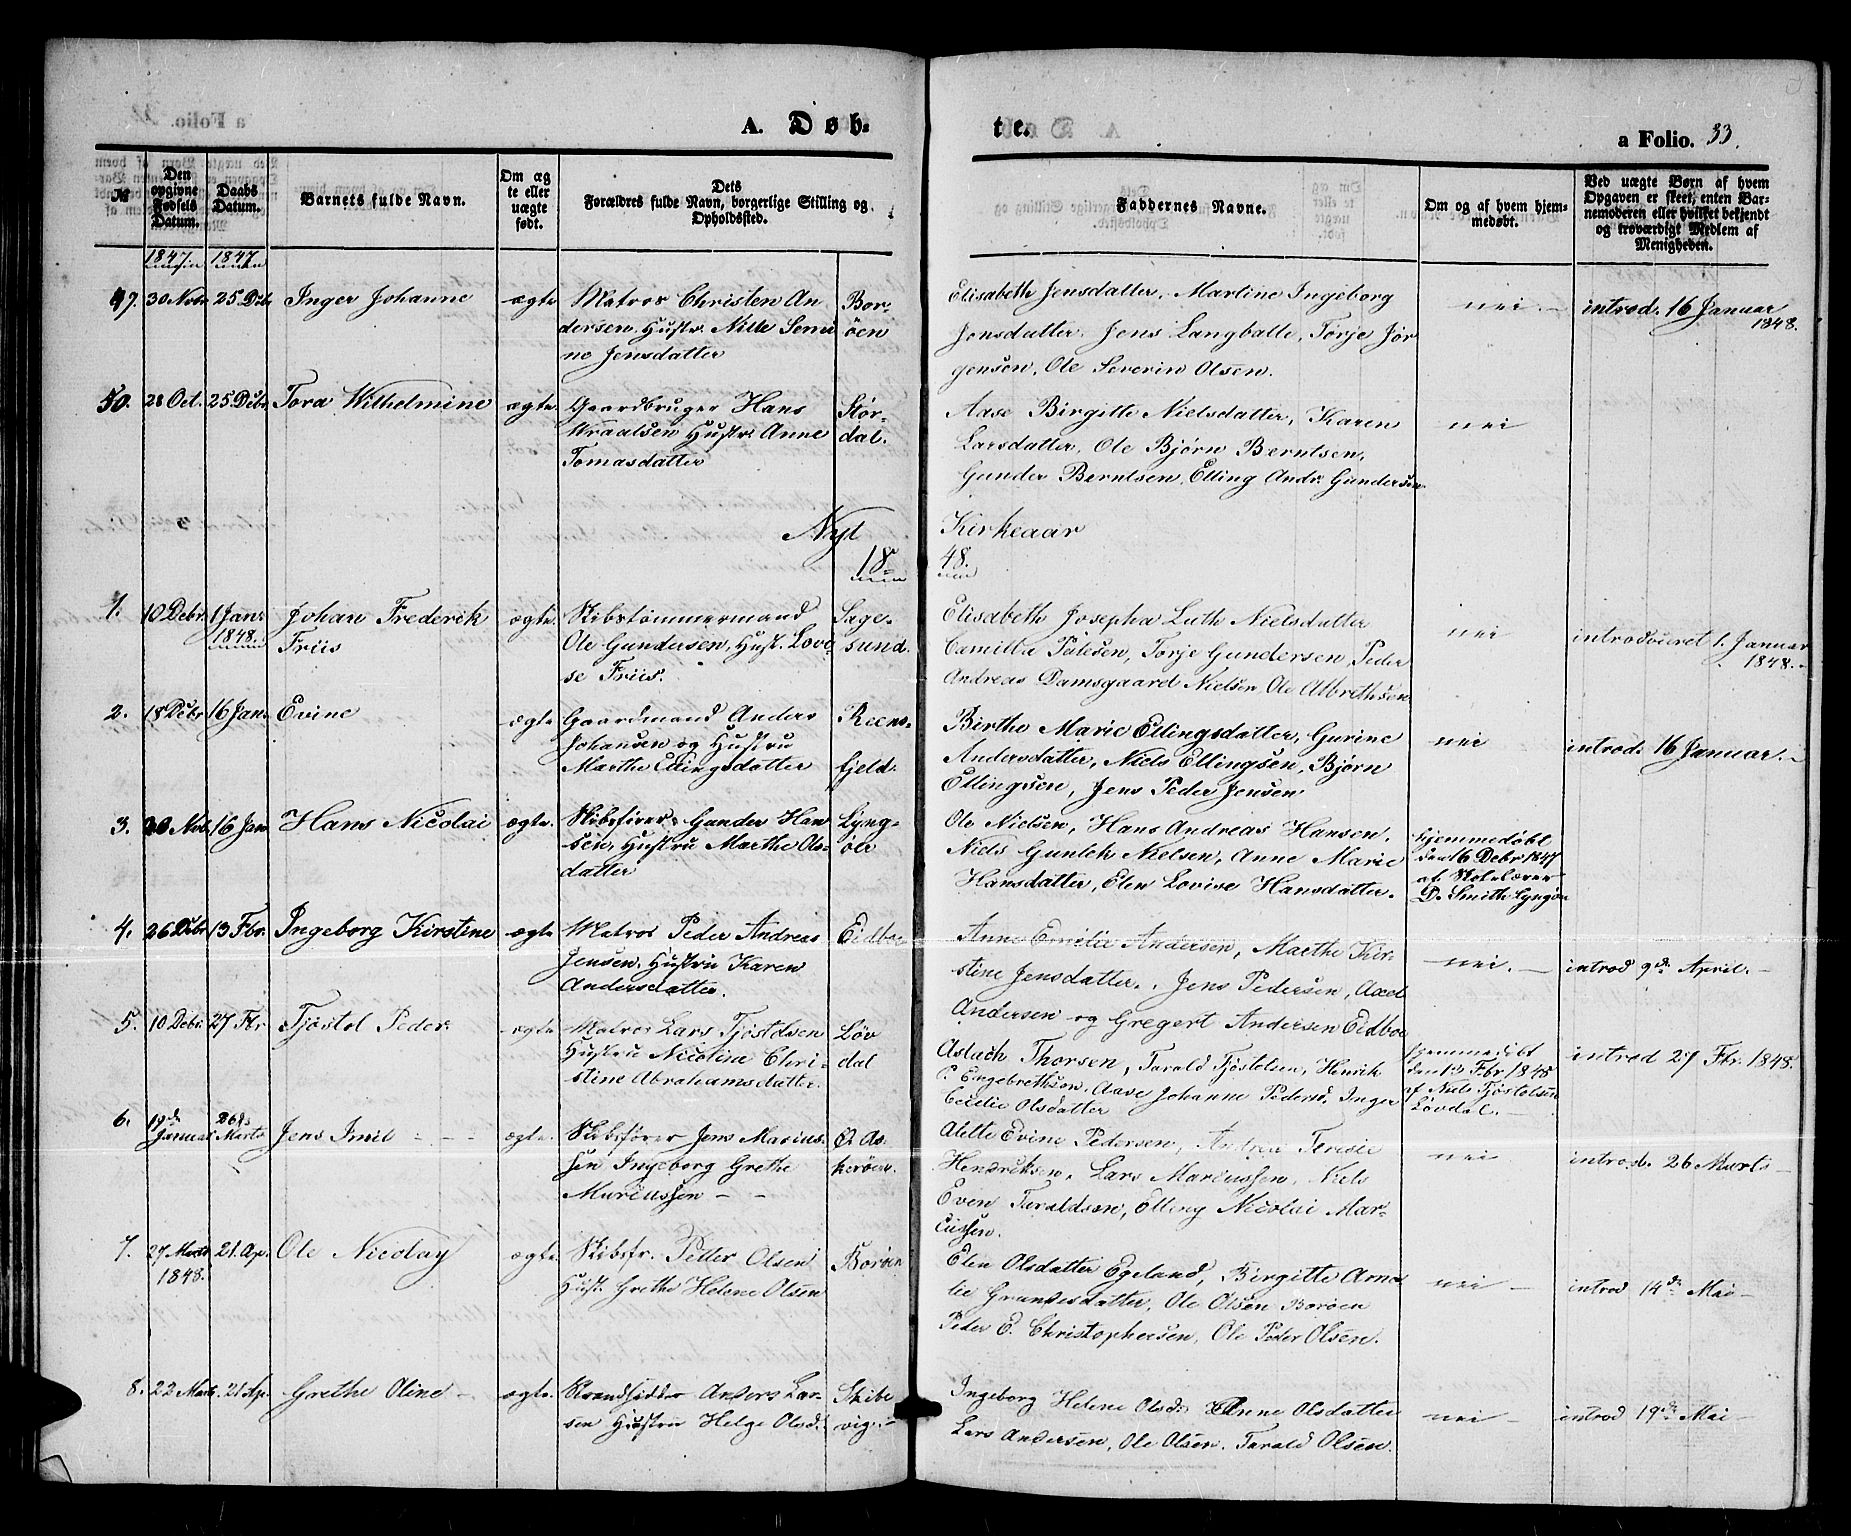 A. Døb-
te.
a Folio. 33.
№
Den opgivne Fødsels Datum.
Daabs Datum.
Barnets fulde Navn.
Om æg te eller uægte født.
Dets Forældres fulde Navn, borgerlige Stilling og Opholdssted.
Faddernes Navne.
Om og af hvem hjemmedøbt.
Ved uægte Børn af hvem Opgaven er skeet, enten Barnemoderen eller hvilket bekjendt og troværdigt Medlem af Menigheden.
1847. 1847.
30 Nobr 25 Debr Inger Johanne ægte Matros Christen An- Bor-
dersen, Hustr. øen
ne Jensdatter
Elisabeth Jensdatter, Martine Ingeborg
Jonsdatter, Jens Langballe, Torje Jør
gensen, Ole Severin Olsen.
nei. introd. 16 Januar
1848.
50. 28 Oct. 25 Debr. Tora Wilhelmine ægte Gaardbruger Hans Stør-
Wraalsen Hustr. Anne dal.
Tomasdatter
Aase Birgitte Nielsdatter, Karen
Larsdatter, Ole Bjørn Berntsen,
Gunder Berntsen, Elling Andr. Gundersen
nei
Nyt Kirkeaar
18 48.
1. 10 Debr. 1 Jan. Johan Frederik ægte. Skibstømmermand Sage-
1848. Friis Ole Gundersen, Hust. Lovi- sund.
se Friis.
Elisabeth Josepha Luth Nielsdatter
Camilla Palesen, Torje Gundersen, Peder
Andreas Damsgaard Nielsen Ole Albrethsen
nei introduceret 1. Januar
1848.
2. 18 Debr 16 Jan. Evine ægte Gaardmand Anders Reens-
Johansen og Hustru
Marthe Ellingsdatter fjeld.
Birthe Marie Ellingsdatter, Gurine
Andersdatter, Niels Ellingsen, Bjørn
Ellingsen, Jens Peder Jensen
nei introd. 16 Januar.
3. 20 Nob. 16 Jan Hans Nicolai ægte. Skibsfører Gunder Han Lyng-
sen, Hustru Marthe Ols- øer
datter
Ole Nielsen, Hans Andreas Hansen.
Niels Gunleh Nielsen, Anne Marie
Hansdatter, Elen Lovise Hansdatter.
Hjemmedøbt
den 16 Debr 1847
af Skolelærer
D. Smith Lyngør
4. 26 Debr 13 Fbr. Ingeborg Kirstine ægte Matros Peder Andreas Eidboe
Jensen, Hustru Karen
Andersdatter.
Anne Emilie Andersen, Marthe Kir-
stine Jensdatter, Jens Pedersen, Axel
Andersen og Gregert Andersen Eidboe
nei. introd 9de April.
5. 10 Debr. 27 Fbr Tjøstol Peder ægte Matros Lars Tjøstolsen Løv
Hustru Nicoline Chri- dal
stine Abrahamsdatter.
Aslach Thorsen, Tarald Tjøstolsen, Henrik
P. Engebrethsen, Aase Johanne Peders. Inger
Cecelie Olsdatter
Hjemmedøbt
den 13 Fbr 1848
af Niels Tjøstolsen
Løvdal.
introd 27 Fbr. 1848.
6. 19de 26de
Januar Marts Jens Imil ægte. Skibsfører Jens Marius- Ø. As-
sen Ingeborg Grethe kerøen.
Mariussen
Alette Evine Pedersen, Andrea Teresie
Hendriksen, Lars Mariussen, Niels
Even Taraldsen, Elling Nicolai Mar-
cussen.
nei introd. 26 Marts
7. 27 Marts 21. Ap. Ole Nicolay ægte. Skibsfr. Peder Olsen Borøen
1848. Hust. Grethe Helene Olsen
Elen Olsdatter Egeland, Birgitte Ama-
lie Grundesdatter, Ole Olsen Borøen
Peder E. Christophersen, Ole Peder Olsen.
nei introd 14de Mai
8. 22 Marts. 21 Ap. Grethe Oline ægte. Strandsidder Anders Lar- Skibe
sen Hustru Helge Olsd. vig.
Ingeborg Helene Olsd. Anne Olsdatter
Lars Andersen, Ole Olsen, Tarald Olsen.
nei introd 19de Mai